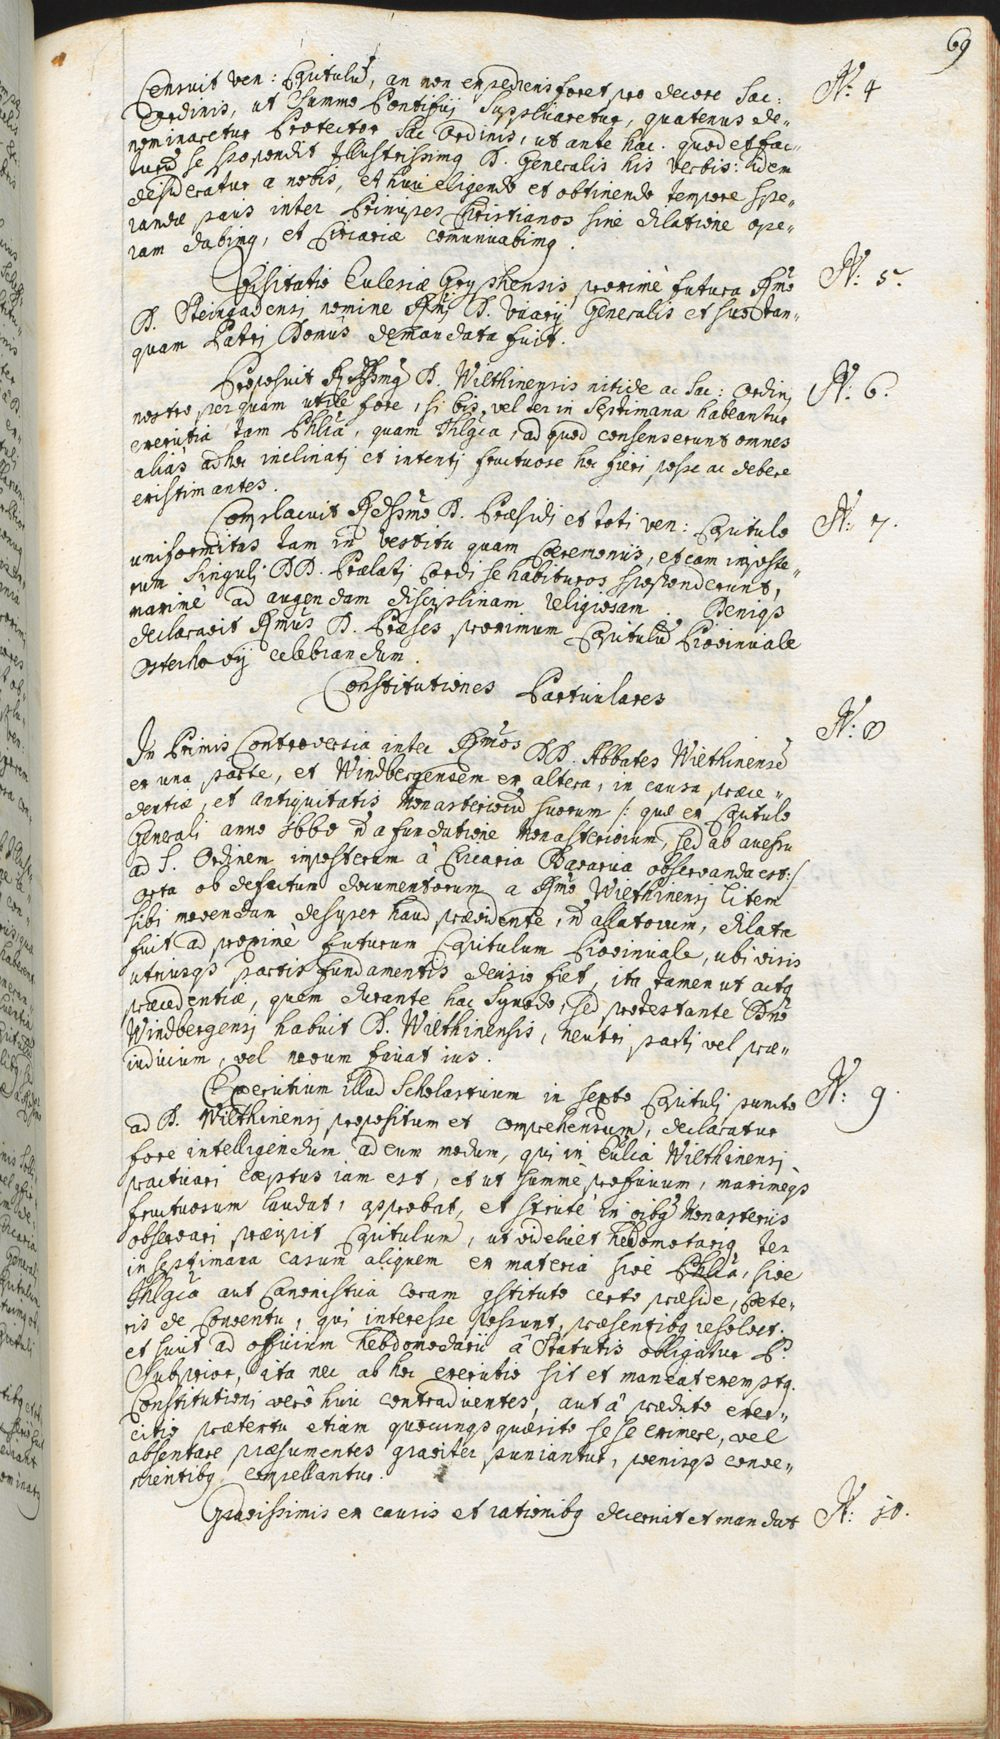 69
Censuit ven: Capitulū, an non expediens foret pro decore Sac: N: 4
Ordinis, ut Summo Pontifici Supplicaretur, quatenus de-
nominaretur Protector Sac Ordinis, ut ante hac. quod et fac-
turū se spopondit Illustrissimq D. Generalis his verbis: idem
desideratur a nobis, et huic eligendo et obtinendo tempore spe-
randæ pacis inter Principes Christianos sine dilatione ope-
ram dabimq, et Circariæ comunicabimq.
Visitatio Ecclesiæ Gryphensis proximè futura Rmo N: 5.
D. Steingadensj nomine Rmj D. Vicarij Generalis et suo tan-
quam Patrj Domûs demandata fuit.
Proposuit Rdssmq D. Wilthinensis nitide ac Sac: Ordinj N: 6.
nostro perquam utile fore, si bis vel ter in Septimana habeantur
exercitia tam Phlica, quam Thlgica, ad quod consenserunt omnes
aliàs ad hoc inclinatj et intentj fructuose hoc fieri posse ac debere
existimantes.
Complacuit Rdssmo D. Præsidi et toti ven: Capitulo N: 7.
uniformitas tam in vestitu quam Cæremoniis, et eam inposte-
rum Singulj DD. Prælatj Cordi se habituros spopronderunt,
maximè ad augendam disciplinam religiosam. Deniqs
declaravit Rmus D. Præses proximum Capitulū Provinciale
Osterhovij celebrandum.
Constitutiones Particulares
In Primis Controversia inter Rmos DD. Abbates Wilthinensē N: 8
ex una parte, et Windbergensem ex altera, in causa præce-
dentiæ, et antiquitatis Monasteriorū suorum /: quæ ex Capitulo
Generali anno 1660 n̄ a fundatione Monasteriorum, sed ab accessu
ad S. Ordinem imposterum â Circaria Bavarica observanda est:/
orta ob defectum documentorum a Rmo Wilthinensj litem
sibi movendam desuper haud prævidente, n̄ allatorum, dilata
fuit ad proximè futurum Capitulum Provinciale, ubi visis
utriusqs partis fundamentis decisio fiet, ita tamen ut actq
præcedentiæ, quem durante hac Synodo, sed protestante Dnō
Windbergensj habuit D. Wilthinensis, neutri partj vel præ-
iudicium, vel novum faciat ius.
Exercitium illud Scholasticum in sexto Capitulj puncto N: 9.
ad D. Wilthinensj propositum et comprehensum, declaratur
fore intelligendum ad eum modum, qui in Ecclia Wilthinensj
practicari cæptus iam est, et ut summè proficuum, maximèqs
fructuosum laudat, approbat, et strictè in oibq Monasteriis
observari præcipit Capitulum, ut videlicet hebdomatariq ter
in septimana casum aliquem ex materia sive Phlica, sive
Thlgica aut Canonistica coram constituto certo præside, cæte-
ris de Conventu, qui interesse possunt, præsentibq resolvet.
et sicut ad officium hebdomadarii â Statutis obligatur P.
Subprior, ita nec ab hoc exercitio sit et maneat exemptq.
Constitutioni verò huic contradicentes, aut â prædicto exer-
citio prætextu etiam quocunqs quæsito sese eximere, vel
absentare præsumentes graviter puniantur, pœnisqs conve-
nientibq compellantur.
Gravissimis ex causis et rationibq decernit et mandat N: 10.